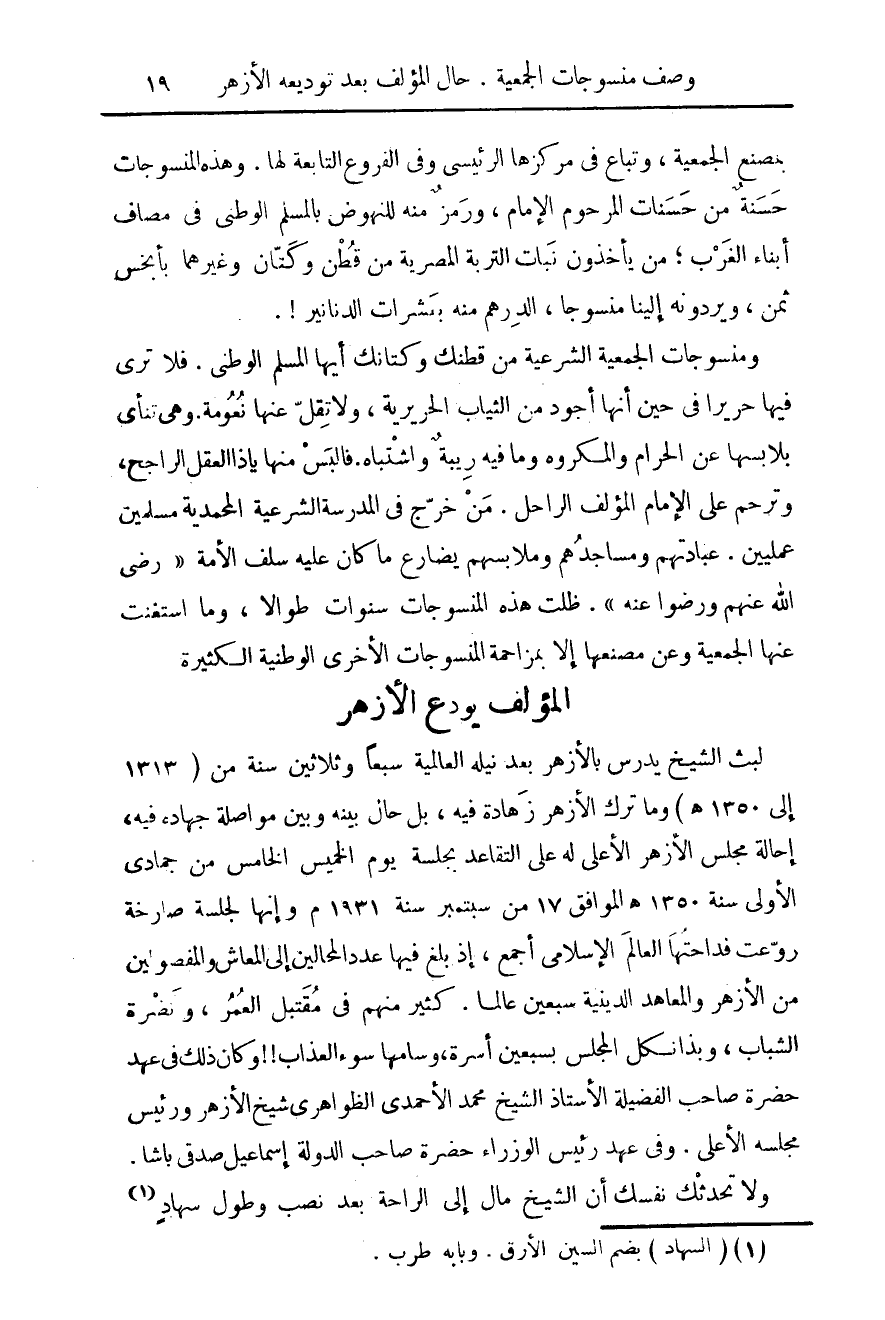 وصف منسوجات الجمعية . حال المؤلف بعد توديعه الأزهر ١٩
بمصنع الجمعية ، وتباع فى مركزها الرئيسى وفى الفروع التابعة لها . وهذه المنسوجات
حَسَنةٌ من حَسَنات المرحوم الإمام ، ورَمزٌ منه للنهوض بالمسلم الوطنى فى مصاف
أبناء الغَرْب ؛ من يأخذون نَبات التربة المصرية من قطْن وكَتّان وغيرهما بأبخس
ثمن ، ويردونه إلينا منسوجا ، الدِرهم منه بعَشرات الدنانير ! .
ومنسوجات الجمعية الشرعية من قطنك وكتانك أيها المسلم الوطنى . فلا ترى
فيها حريرا فى حين أنها أجود من الثياب الحريرية ، ولا تِقلّ عنها نُعُومة . وهى تنأى
بلابسها عن الحرام والمكروه وما فيه رِيبةٌ واشْتباه . فالبَسْ منها ياذا العقل الراجح ،
وترحم على الإمام المؤلف الراحل . مَنْ خرّج فى المدرسة الشرعية المحمدية مسلمين
عمليين . عبادتهم ومساجدُهم وملابسهم يضارع ما كان عليه سلف الأمة « رضى
الله عنهم ورضوا عنه » . ظلت هذه المنسوجات سنوات طوالا ، وما استغنت
عنها الجمعية وعن مصنعها إلا بمزاحمة المنسوجات الأخرى الوطنية الكثيرة
المؤلف يودع الأزهر
لبث الشيخ يدرس بالأزهر بعد نيله العالمية سبعاً وثلاثين سنة من ( ١٣١٣
إلى ١٣٥٠ ه ) وما ترك الأزهر زَهادة فيه ، بل حال بينه وبين مواصلة جهاده فيه ،
إحالة مجلس الأزهر الأعلى له على التقاعد بجلسة يوم الخميس الخامس من جمادى
الأولى سنة ١٣٥٠ ه الموافق ١٧ من سبتمبر سنة ١٩٣١ م وإنها لجلسة صارخة
روّعت فداحتُها العالمَ الإسلامى أجمع ، إذ بلغ فيها عدد المحالين إلى المعاش والمفصولين
من الأزهر والمعاهد الدينية سبعين عالما . كثير منهم فى مُقتبل العمُرُ ، ونَضْرة
الشباب ، وبذا نكل المجلس بسبعين أسرة ، وسامها سوء العذاب !! وكان ذلك فى عهد
حضرة صاحب الفضيلة الأستاذ الشيخ محمد الأحمدى الظواهرى شيخ الأزهر ورئيس
مجلسه الأعلى . وفى عهد رئيس الوزراء حضرة صاحب الدولة إسماعيل صدقى باشا .
ولا تحدثْك نفسك أن الشيخ مال إلى الراحة بعد نصب وطول سهادٍ (١)
(١) ( السهاد ) بضم السين الأرق . وبابه طرب .